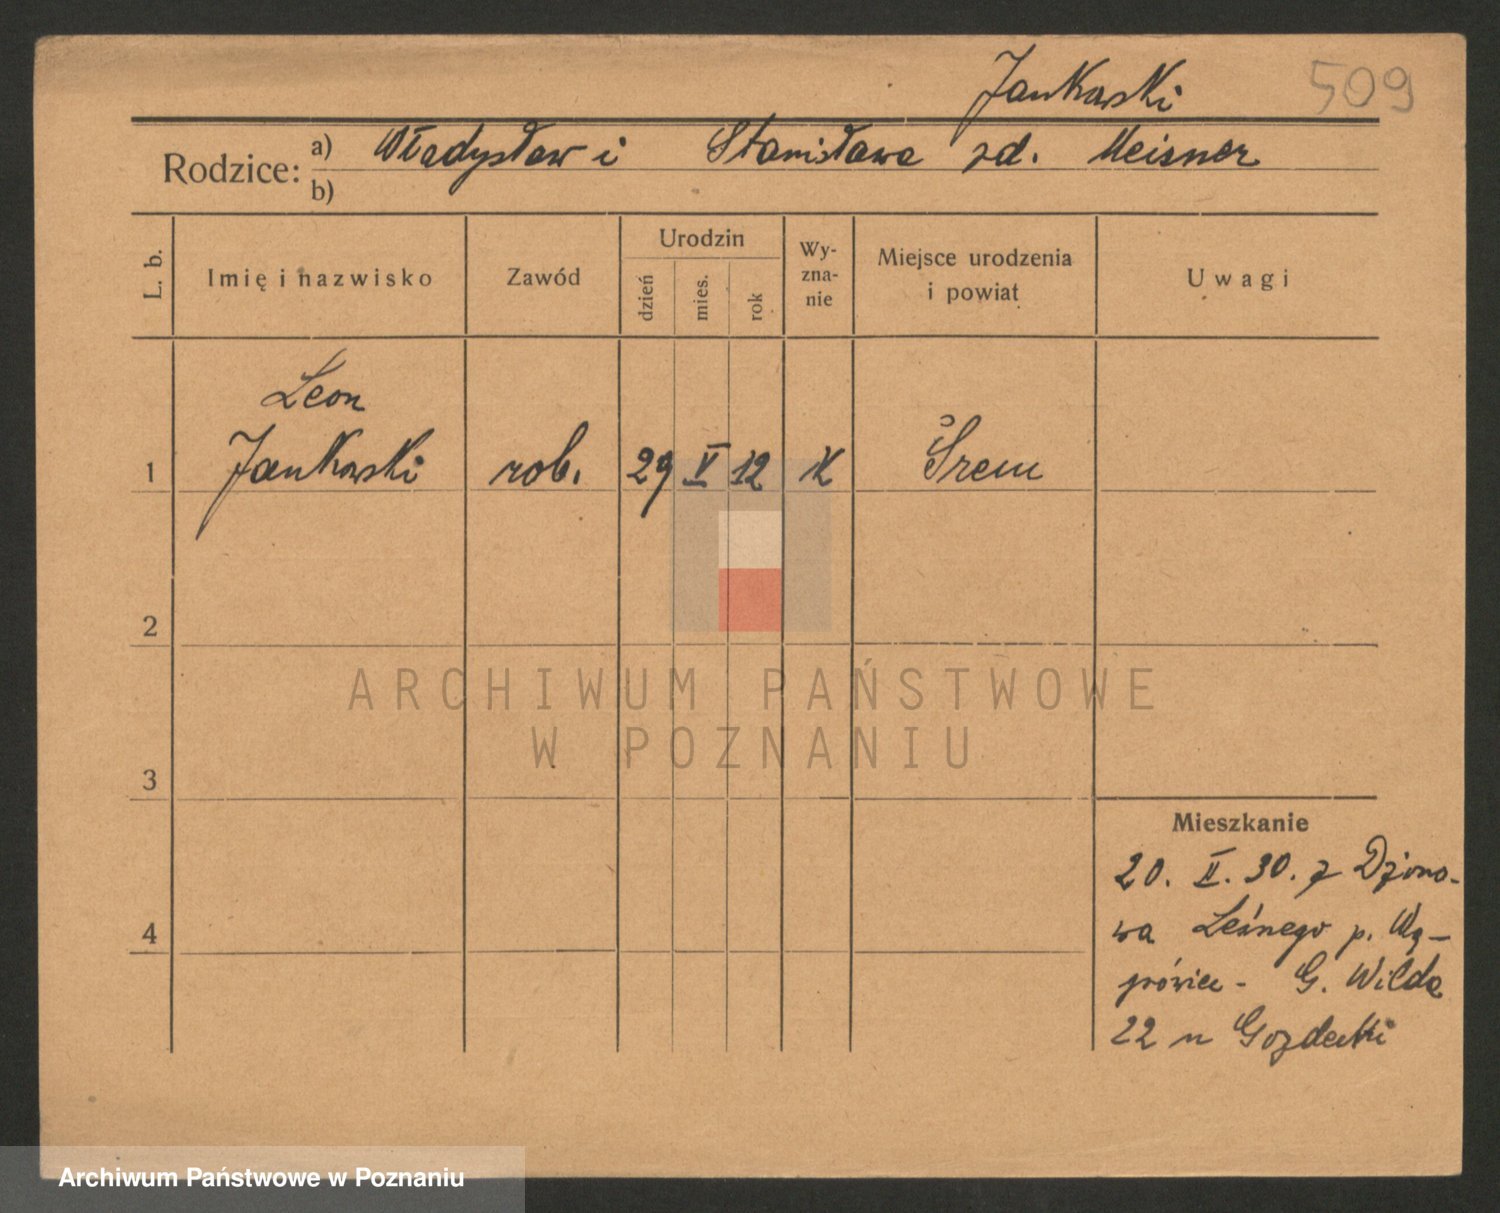 Jankowski 509
Rodzice: a) Władysław i Stanisława zd. Meisner
b)
L. b. Imię i nazwisko Zawód Urodzin dzień mies. rok Wy-zna-nie Miejsce urodzenia i powiat Uwagi
Leon
1 Jankowski rob. 29 V 12 K Śrem
2
ARCHIWUM PAŃSTWOWE
W POZNANIU
3
Mieszkanie
20. II. 30. z
4
Leśnego p. Wą-
G. Wilda
22 u Gozdecki
Archiwum Państwowe w Poznaniu